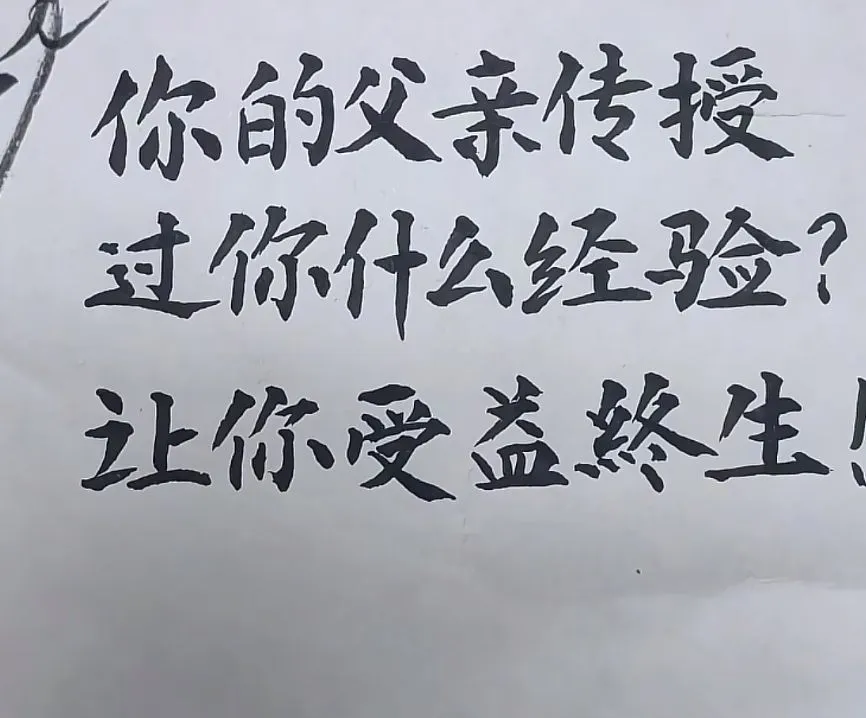 你的父亲传授
过你什么经验?
让你受益終生!